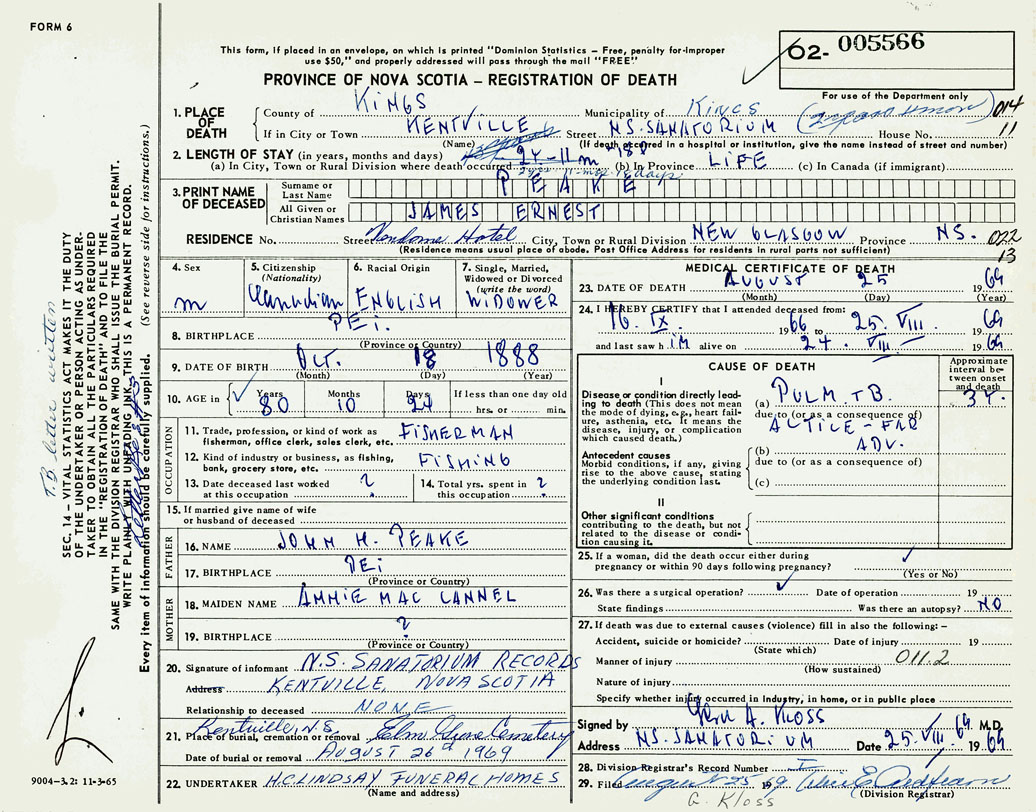 FORM 6
This form, if placed in an envelope, on which is printed "Dominion Statistics – Free, penalty for improper
use $50," and properly addressed will pass through the mail "FREE"
PROVINCE OF NOVA SCOTIA – REGISTRATION OF DEATH
62- 005566
For use of the Department only
014
11
1. PLACE OF DEATH
County of KINGS Municipality of KINGS
If in City or Town KENTVILLE Street N.S. SANATORIUM House No.
(Name) (If death occurred in a hospital or institution, give the name instead of street and number)
2. LENGTH OF STAY (in years, months and days) 2Y-11m-18D
(a) In City, Town or Rural Division where death occurred 2 yrs. 11 mos. 18 days (b) In Province LIFE (c) In Canada (if immigrant)
3. PRINT NAME OF DECEASED
Surname or Last Name PEAKE
All Given or Christian Names JAMES ERNEST
RESIDENCE No. Street Vendome Hotel City, Town or Rural Division NEW GLASGOW Province N.S. 022
(Residence means usual place of abode. Post Office Address for residents in rural parts not sufficient) 13
4. Sex m
5. Citizenship (Nationality) Canadian
6. Racial Origin ENGLISH
7. Single, Married, Widowed or Divorced (write the word) WIDOWER
8. BIRTHPLACE P.E.i.
(Province or Country)
9. DATE OF BIRTH Oct. 18 1888
(Month) (Day) (Year)
10. AGE in Years 80 Months 10 Days 24 If less than one day old hrs. or min.
OCCUPATION
11. Trade, profession, or kind of work as fisherman, office clerk, sales clerk, etc. FISHERMAN
12. Kind of industry or business, as fishing, bank, grocery store, etc. FISHING
13. Date deceased last worked at this occupation ?
14. Total yrs. spent in this occupation ?
15. If married give name of wife or husband of deceased
FATHER
16. NAME JOHN H. PEAKE
17. BIRTHPLACE PEi
(Province or Country)
MOTHER
18. MAIDEN NAME AMMIE MAC CANNEL
19. BIRTHPLACE ?
(Province or Country)
20. Signature of informant N.S. SANATORIUM RECORDS
Address KENTVILLE, NOVA SCOTIA
Relationship to deceased NONE
Kentville, N.S.
21. Place of burial, cremation or removal Elm Grove Cemetery
Date of burial or removal August 26th 1969
22. UNDERTAKER H.C. LINDSAY FUNERAL HOMES
(Name and address)
MEDICAL CERTIFICATE OF DEATH
23. DATE OF DEATH AUGUST 25 1969
(Month) (Day) (Year)
24. I HEREBY CERTIFY that I attended deceased from:
16. IX. 1966 to 25. VIII. 1969
and last saw him alive on 24. VIII. 1969
CAUSE OF DEATH
Approximate interval between onset and death
I
Disease or condition directly leading to death (This does not mean the mode of dying, e.g., heart failure, asthenia, etc. It means the disease, injury, or complication which caused death.)
(a) PULM TB. 3Y.
due to (or as a consequence of)
ACTIVE - FAR
ADV.
Antecedent causes
Morbid conditions, if any, giving rise to the above cause, stating the underlying condition last.
(b)
due to (or as a consequence of)
(c)
II
Other significant conditions
contributing to the death, but not related to the disease or condition causing it.
25. If a woman, did the death occur either during pregnancy or within 90 days following pregnancy?
(Yes or No)
26. Was there a surgical operation? Date of operation 19
State findings Was there an autopsy? NO
27. If death was due to external causes (violence) fill in also the following: –
Accident, suicide or homicide? Date of injury 19
(State which)
Manner of injury 011.2
(How sustained)
Nature of injury
Specify whether injury occurred in Industry, in home, or in public place
Signed by A. Kloss M.D.
Address N.S. SANATORIUM Date 25. VIII. 1969
28. Division Registrar's Record Number
29. Filed August 25 1969
(Division Registrar)
G. Kloss
9004–3.2: 11-3-65
T.B. letter written
SEC. 14 – VITAL STATISTICS ACT MAKES IT THE DUTY
OF THE UNDERTAKER OR PERSON ACTING AS UNDER-
TAKER TO OBTAIN ALL THE PARTICULARS REQUIRED
IN THE "REGISTRATION OF DEATH" AND TO FILE THE
SAME WITH THE DIVISION REGISTRAR WHO SHALL ISSUE THE BURIAL PERMIT.
WRITE PLAINLY WITH UNFADING INK. THIS IS A PERMANENT RECORD.
Every item of information should be carefully supplied. (See reverse side for instructions.)